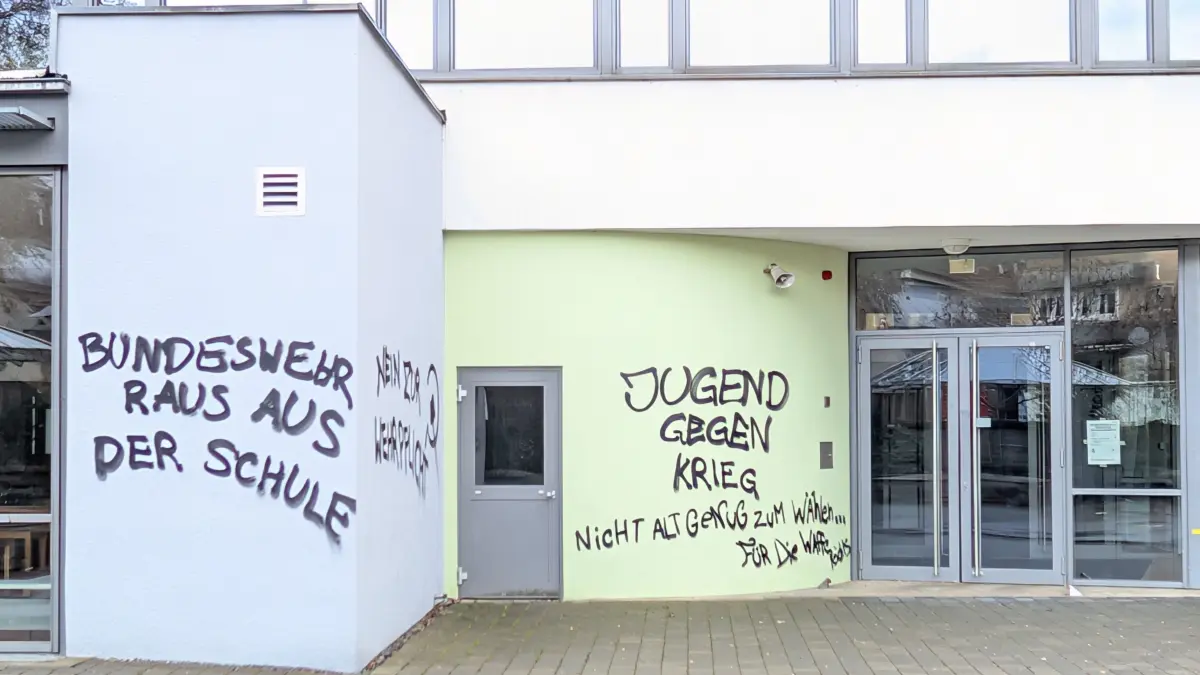 BUNDESWEhR
RAUS AUS
DER SCHULE
NEIN ZUR
WEHRPFLICHT
JUGEND
GEGEN
KRIEG
NiCHT ALT GeNUG ZUM WÄHlen...
FÜR Die WAffe